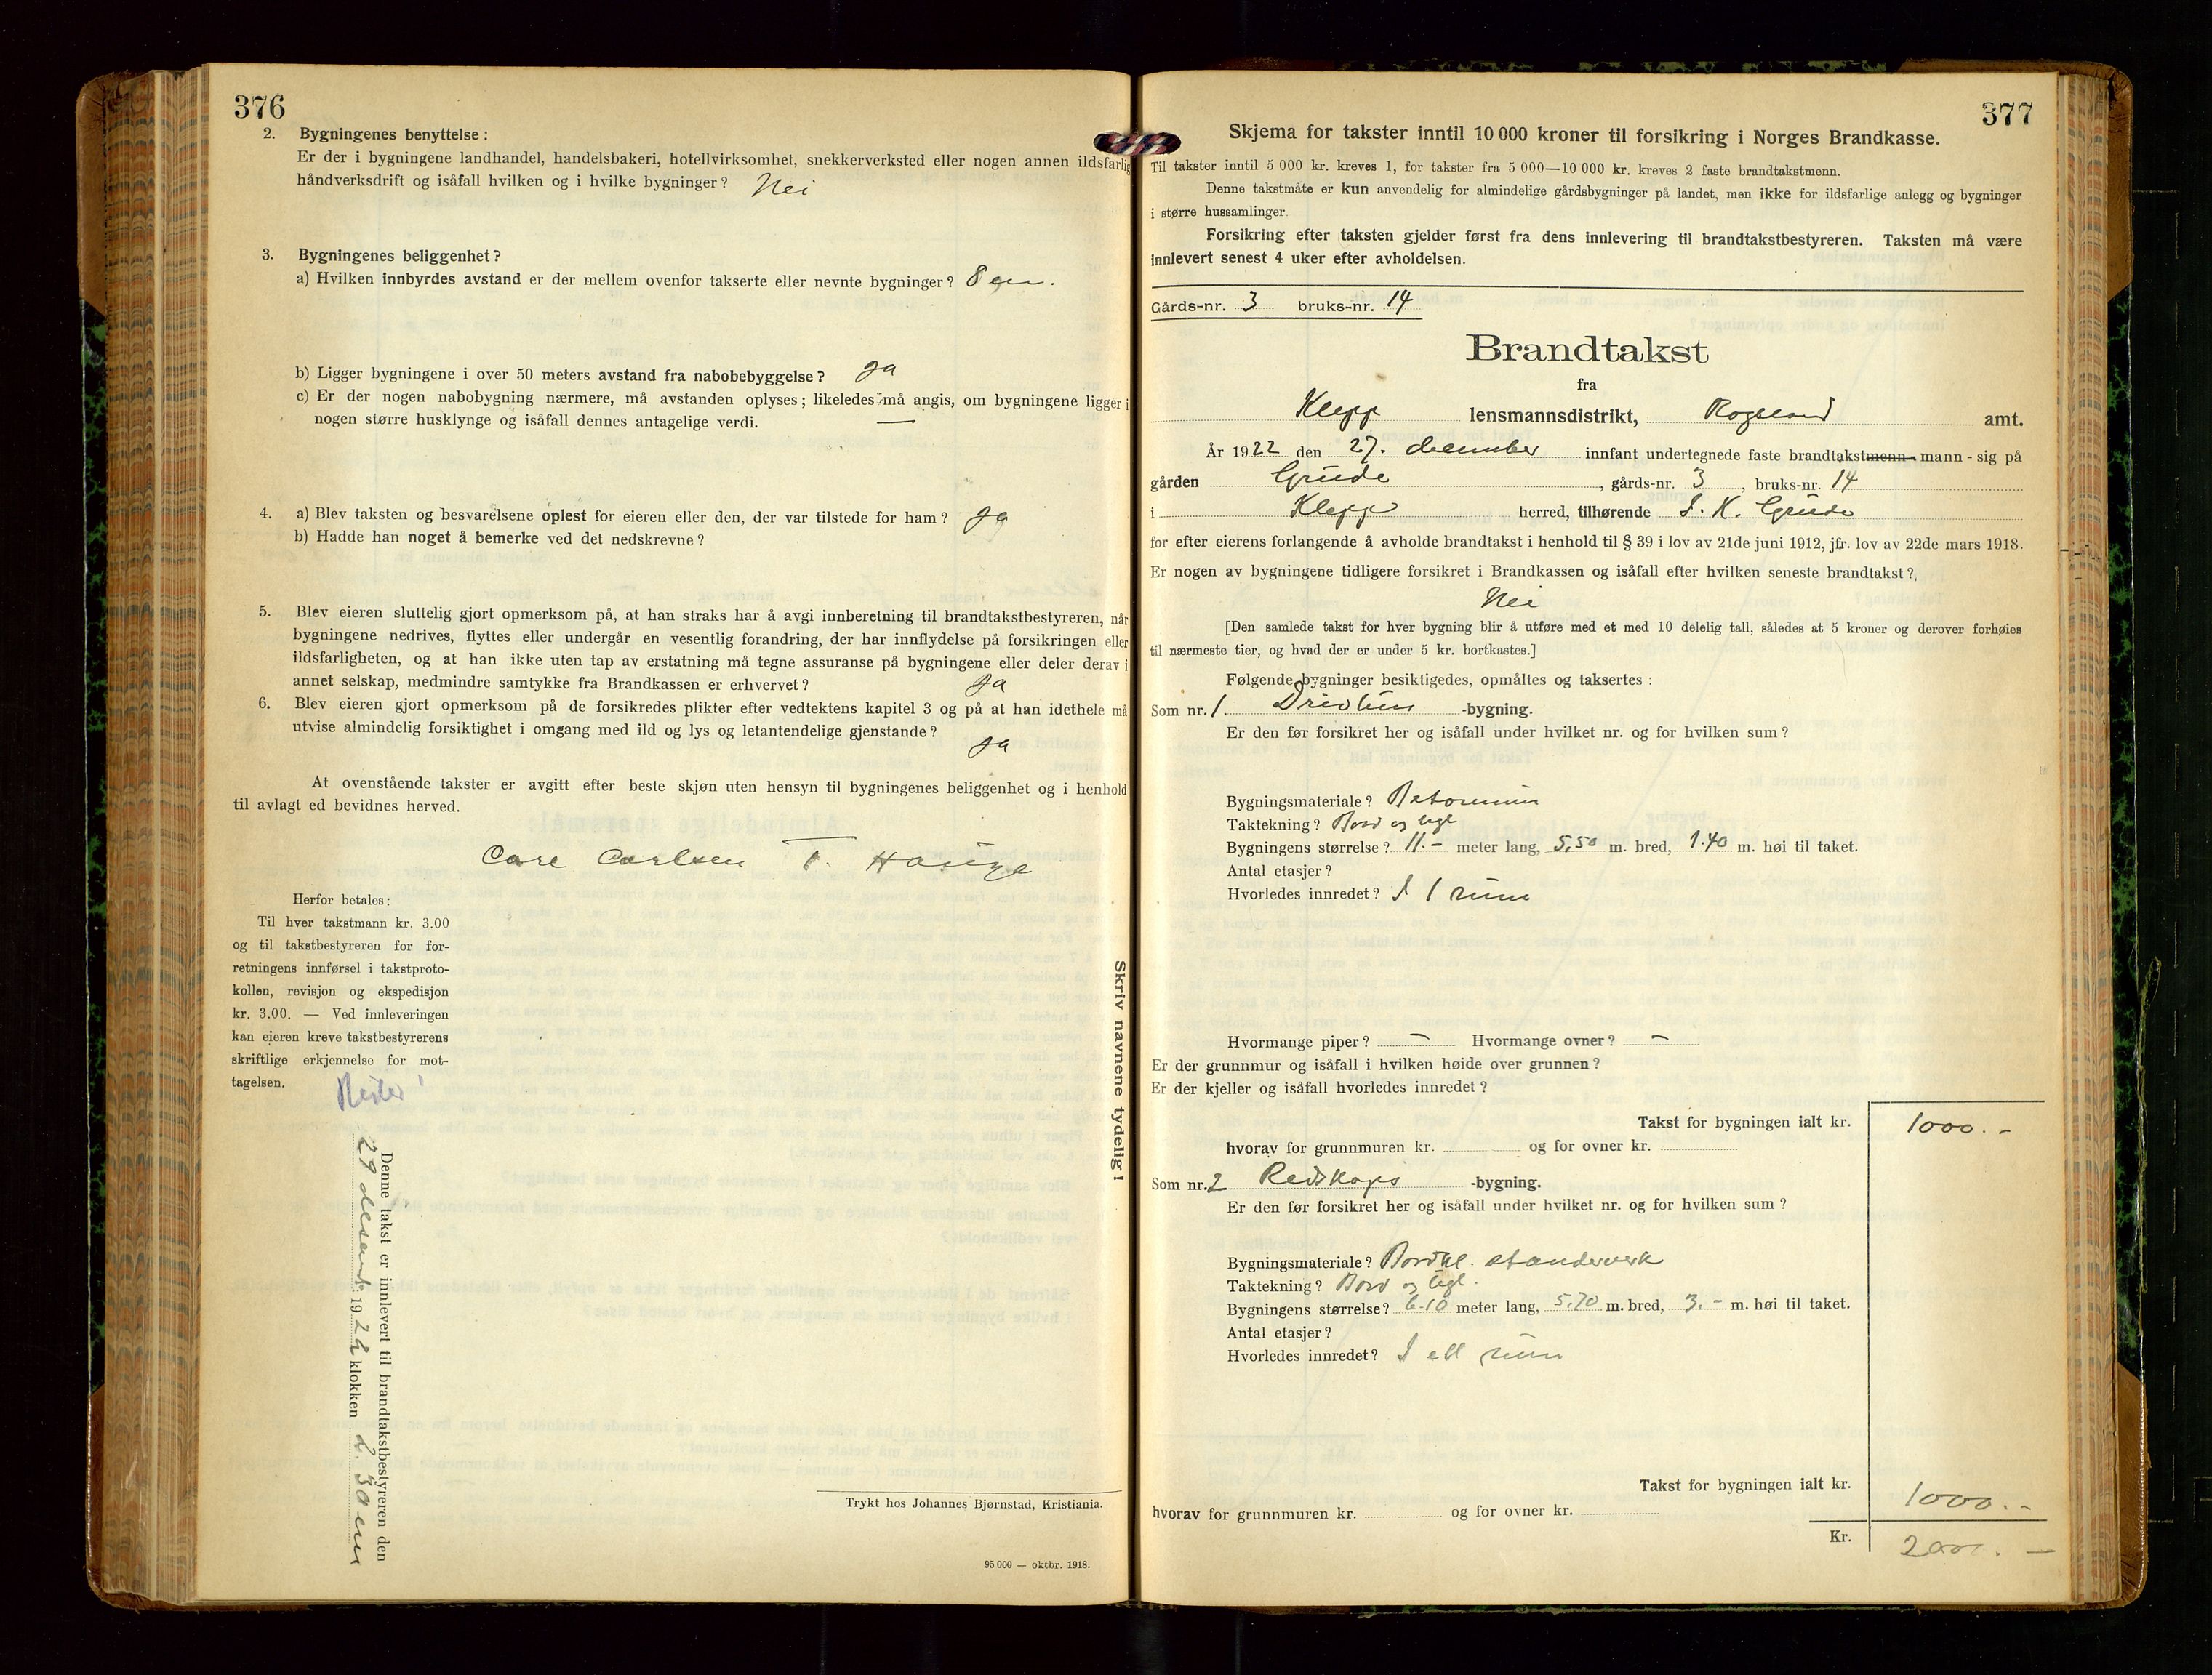 376
2. Bygningenes benyttelse:
Er der i bygningene landhandel, handelsbakeri, hotellvirksomhet, snekkerverksted eller nogen annen ildsfarlig
håndverksdrift og isåfall hvilken og i hvilke bygninger? Nei
3. Bygningenes beliggenhet?
a) Hvilken innbyrdes avstand er der mellem ovenfor takserte eller nevnte bygninger? 8 m.
b) Ligger bygningene i over 50 meters avstand fra nabobebyggelse? Ja
c) Er der nogen nabobygning nærmere, må avstanden oplyses; likeledes må angis, om bygningene ligger i
nogen større husklynge og isåfall dennes antagelige verdi. —
4. a) Blev taksten og besvarelsene oplest for eieren eller den, der var tilstede for ham? Ja
b) Hadde han noget å bemerke ved det nedskrevne?
5. Blev eieren sluttelig gjort opmerksom på, at han straks har å avgi innberetning til brandtakstbestyreren, når
bygningene nedrives, flyttes eller undergår en vesentlig forandring, der har innflydelse på forsikringen eller
ildsfarligheten, og at han ikke uten tap av erstatning må tegne assuranse på bygningene eller deler derav i
annet selskap, medmindre samtykke fra Brandkassen er erhvervet? Ja
6. Blev eieren gjort opmerksom på de forsikredes plikter efter vedtektens kapitel 3 og på at han idethele må
utvise almindelig forsiktighet i omgang med ild og lys og letantendelige gjenstande? Ja
At ovenstående takster er avgitt efter beste skjøn uten hensyn til bygningenes beliggenhet og i henhold
til avlagt ed bevidnes herved.
Care Carlsen T. Hauge
Herfor betales:
Til hver takstmann kr. 3.00
og til takstbestyreren for for-
retningens innførsel i takstproto-
kollen, revisjon og ekspedisjon
kr. 3.00. — Ved innleveringen
kan eieren kreve takstbestyrerens
skriftlige erkjennelse for mot-
tagelsen.
Denne takst er innlevert til brandtakstbestyreren den
29 desemb. 1922 klokken 2. 30 em
Skriv navnene tydelig!
Trykt hos Johannes Bjørnstad, Kristiania.
95 000 — oktbr. 1918.
377
Skjema for takster inntil 10 000 kroner til forsikring i Norges Brandkasse.
Til takster inntil 5 000 kr. kreves 1, for takster fra 5 000—10 000 kr. kreves 2 faste brandtakstmenn.
Denne takstmåte er kun anvendelig for almindelige gårdsbygninger på landet, men ikke for ildsfarlige anlegg og bygninger
i større hussamlinger.
Forsikring efter taksten gjelder først fra dens innlevering til brandtakstbestyreren. Taksten må være
innlevert senest 4 uker efter avholdelsen.
Gårds-nr. 3 bruks-nr. 14
Brandtakst
fra
Klepp lensmannsdistrikt, Rogaland amt.
År 1922 den 27. december innfant undertegnede faste brandtakstmenn- mann - sig på
gården Grude, gårds-nr. 3, bruks-nr. 14
i Klepp herred, tilhørende S. K. Grude
for efter eierens forlangende å avholde brandtakst i henhold til § 39 i lov av 21de juni 1912, jfr. lov av 22de mars 1918.
Er nogen av bygningene tidligere forsikret i Brandkassen og isåfall efter hvilken seneste brandtakst?
Nei
[Den samlede takst for hver bygning blir å utføre med et med 10 delelig tall, således at 5 kroner og derover forhøies
til nærmeste tier, og hvad der er under 5 kr. bortkastes.]
Følgende bygninger besiktigedes, opmåltes og taksertes:
Som nr. 1. Drivhus -bygning.
Er den før forsikret her og isåfall under hvilket nr. og for hvilken sum?
Bygningsmateriale? Betonmur
Taktekning? Bord og tegl
Bygningens størrelse? 11.- meter lang, 5,50 m. bred, 1.40 m. høi til taket.
Antal etasjer?
Hvorledes innredet? I 1 rum
Hvormange piper? — Hvormange ovner? —
Er der grunnmur og isåfall i hvilken høide over grunnen?
Er der kjeller og isåfall hvorledes innredet?
Takst for bygningen ialt kr. 1000.-
hvorav for grunnmuren kr. og for ovner kr.
Som nr. 2 Redskaps -bygning.
Er den før forsikret her og isåfall under hvilket nr. og for hvilken sum?
Bygningsmateriale? Bordkl. standerverk
Taktekning? Bord og tegl.
Bygningens størrelse? 6.10 meter lang, 5.70 m. bred, 3.- m. høi til taket.
Antal etasjer?
Hvorledes innredet? I ett rum
Takst for bygningen ialt kr. 1000.-
hvorav for grunnmuren kr. og for ovner kr.
Kr. 2000. —